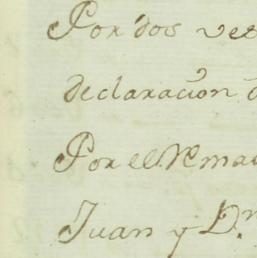 Por dos vez
declaracion d
Por el Rema
Juan y D.n